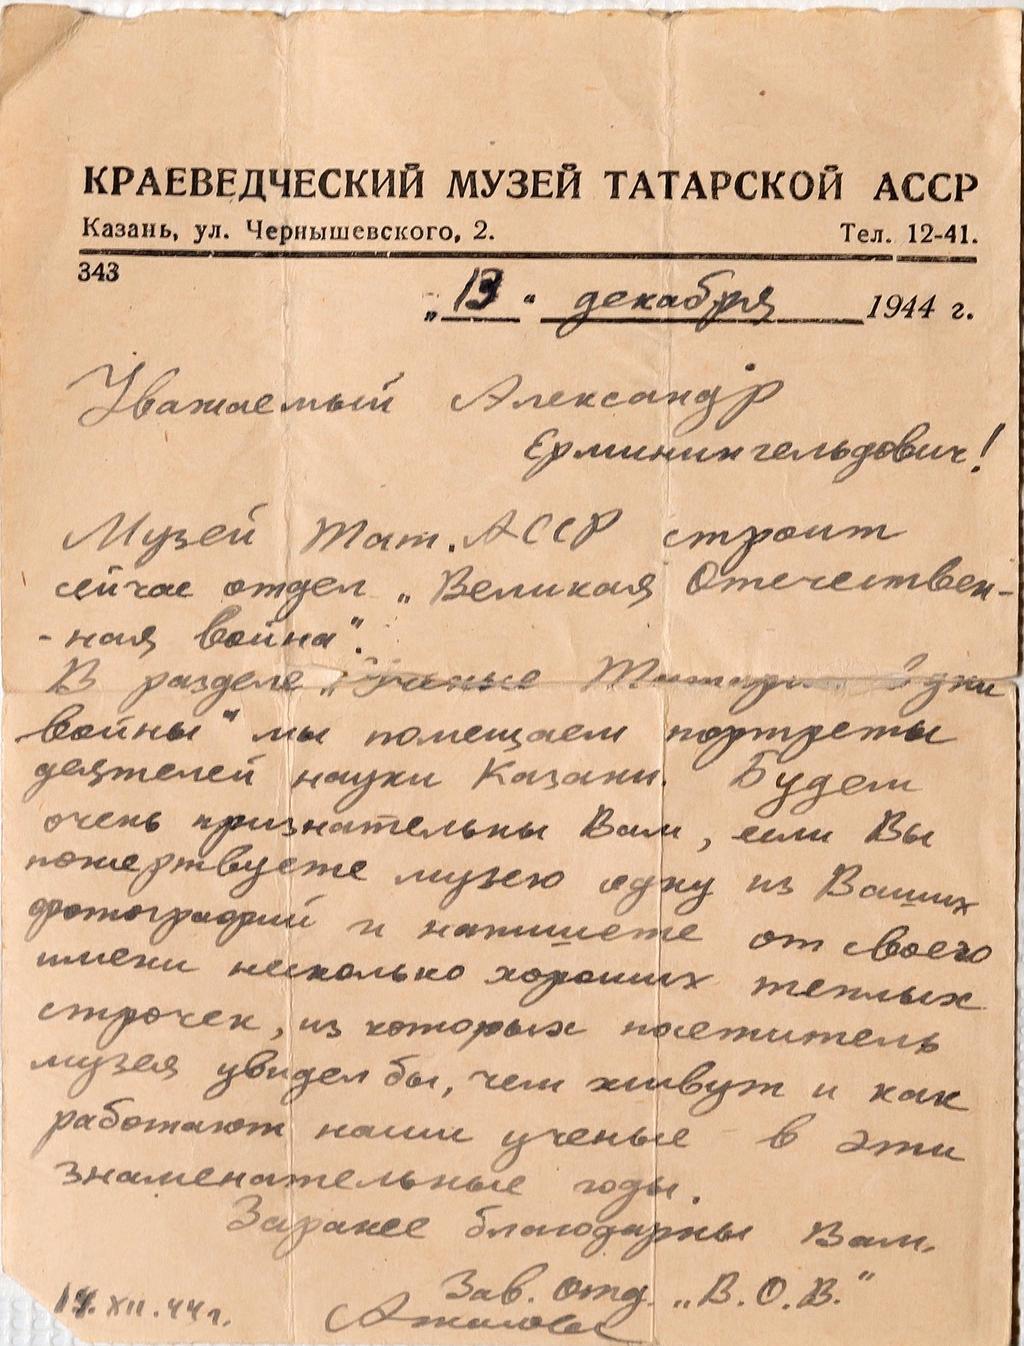 КРАЕВЕДЧЕСКИЙ МУЗЕЙ ТАТАРСКОЙ АССР
Казань, ул. Чернышевского, 2. Тел. 12-41.
343
„13" декабря 1944 г.
Уважаемый Александр
Ерминингельдович!
Музей Тат. АССР строит
сейчас отдел „Великая Отечествен-
-ная война".
В разделе „Ученые в дни
войны" мы помещаем портреты
деятелей науки Казани. Будем
очень признательны Вам, если Вы
пожертвуете музею одну из Ваших
фотографий и напишете от своего
имени несколько хороших теплых
строчек, из которых посетитель
музея увидел бы, чем живут и как
работают наши ученые в эти
знаменательные годы.
Заранее благодарны Вам.
Зав. отд. „В.О.В."
19.XII.44г.